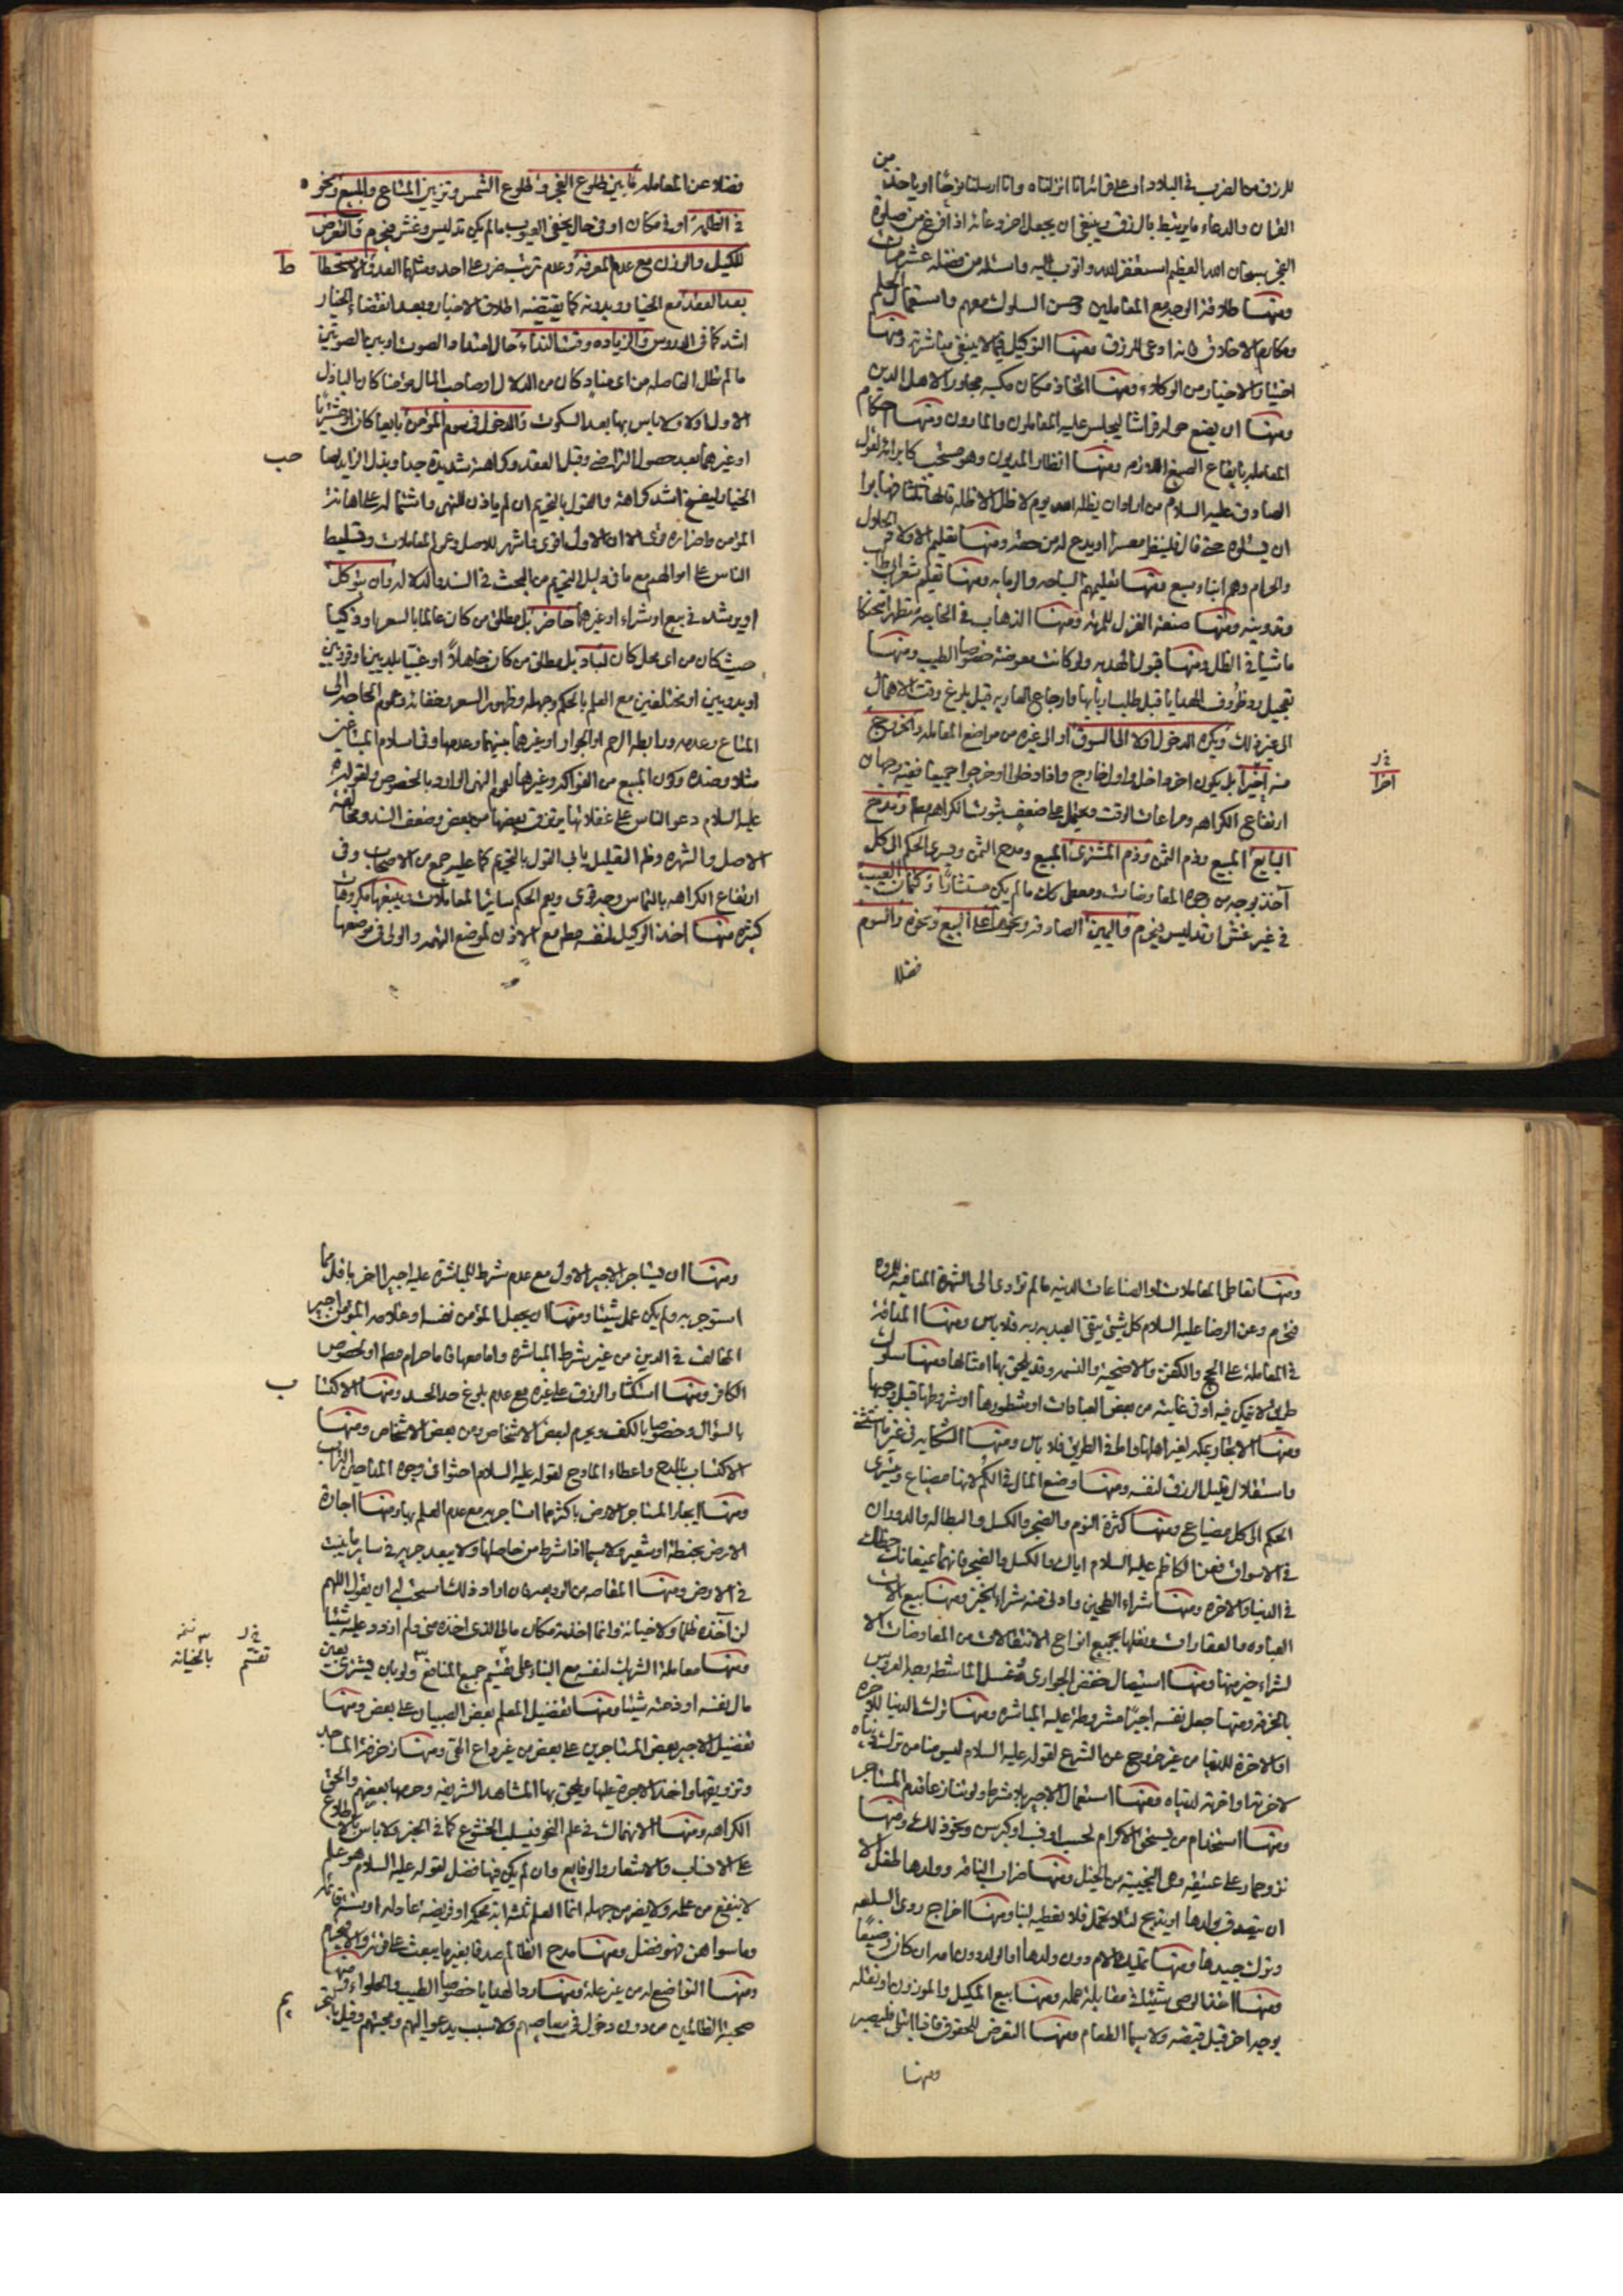 من
للرزق من الضرب في البلاد او على قرائة انا انزلناه وانا ارسلنا نوحًا او ياخذ
القران والدعاء ما يرتبط بالرزق وينبغي ان يجعل اخر دعائه اذا فرغ من صلوة
الفجر سبحان الله العظيم استغفر الله واتوب اليه واسئله من فضله عشر مرات
ومنها طلاقة الوجه مع المعاملين وحسن السلوك معهم واستعمال الحلم
ومكارم الاخلاق فانه ادعى للرزق ومنها التوكيل فيما لا ينبغي مباشرته ومنها
اختيار الاخيار من الوكلاء ومنها اتخاذ مكان مكسبه مجاورا لاهل الدين
ومنها ان يضع حوله فراشا ليجلس عليه المعاملون والمارون ومنها احكام
المعامله بايقاع الصيغ اللازمه ومنها انظار المديون وهو مستحب كابرائه لقول
الصادق عليه السلام من اراد ان يظله الله يوم لا ظل الا ظله قالها ثلثا فهابوا
ان يسئلوه حتى قال فلينظر معسرا او يدع له من حقه ومنها تعليم الاولاد الحلال
والحرام وهم ابناء سبع ومنها تعليمهم السباحه والرمايه ومنها تعلم شعر ابي طالب
وتدوينه ومنها صنعة الغزل للمرئه ومنها الذهاب في الحاجه متطهرا محنكا
ماشيا في الظل ومنها قبول الهديه ولو كانت معوضة خصوصا الطيب ومنها
تعجيل رد ظروف الهدايا قبل طلب اربابها وارجاع العاريه قبل بلوغ وقت الاهمال
الى غير ذلك ويكره الدخول اولا الى السوق او الى غيره من مواضع المعامله والخروج
منه اخيرًا بل يكون اخر داخل واول خارج واذا دخلوا او خرجوا جميعا ففيه وجهان
في ل
اخرا
ارتفاع الكراهه ومراعات الوقت ويحتمل على ضعف ثبوت الكراهه مطلقا ومدح
البايع المبيع وذم الثمن وذم المشترى المبيع ومدح الثمن ويسرى الحكم الى كل
آخذ بوجه من وجوه المعاوضات ومعطى كك ما لم يكن مستشارًا وكتمان العيب
في غير غش او تدليس فيحرم واليمين الصادقه ونحوها على البيع ونحوه والسوم
فضلا
فضلا عن المعامله ما بين طلوع الفجر وطلوع الشمس وتزيين المتاع والمبيع ونحوه
في الظلمة او في مكان او في حال يخفي العيوب ما لم يكن تدليس وغش فيحرم والتعرض
للكيل والوزن مع عدم المعرفة وعدم ترتب ضرر على احد ومثلهما العد والاستحطاط
بعد العقد مع الخيار وبدونه كما يقتضيه اطلاق الاخبار وبعد انقضاء الخيار
اشد كما في الدروس والزياده وقت النداء حال امتداد الصوت او بين الصوتين
ما لم تطل الفاصله من اى مناد كان من الدلال او صاحب المال مؤمنا كان الباذل
الاول اولا ولا باس بها بعد السكوت والدخول في سوم المؤمن بايعا كان او مشتريًا
او غيرهما بعد حصول التراضي وقبل العقد وكراهته شديدة جدا وبذل الزايد لصاحب
الخيار ليفسخ اشد كراهة والقول بالتحريم ان لم ياذن للنهى واشتماله على اهانة
المؤمن واضراره قوى الا ان الاول اقوى واشهر للاصل وعموم المعاملات وتسليط
الناس على اموالهم مع ما في دليل التحريم من البحث في السند والدلاله وان يتوكل
او يرشد في بيع او شراء او غيرهما حاضر بل مطلق من كان عالما بالسعر او ذكيا
حيث كان من اى محل كان لباد بل مطلق من كان جاهلاً او غبيا بلديين او قرويين
او بدويين او مختلفين مع العلم بالحكم وجهله وظهور السعر وخفائه وعموم الحاجه الى
المتاع وعدمه ورابطه الرحم او الجوار او غيرهما بينهما وعدمها وفي اسلام المتبايعين
مثلا وضده وكون المبيع من الفواكه وغيرها لعموم النهى الوارد بالخصوص ولقوله
عليه السلام دعوا الناس على غفلاتها يرزق بعضها من بعض وضعف السند ومخالفة
الاصل والشهره وظاهر التعليل ياباه القول بالتحريم كما عليه جمع من الاصحاب وفي
ارتفاع الكراهه بالتماس وجه قوى ويعم الحكم ساير المعاملات ويتبعها مكروهات
كثيره منها اخذ الوكيل لنفسه مطلقا مع الاذن لموضع التهمه والولى في موضعها
ومنها تعاطى المعاملات او الصناعات الدنيه ما لم تؤدى الى الشهرة المنافيه للمروه
فتحرم وعن الرضا عليه السلام كل شيئ يتقى العبد به ربه فلا باس ومنها المداقة
في المعاملة على الحج والكفن والاضحية والنسمه وقد يلحق بها امثالها ومنها سلوك
طريق لا يتمكن فيه او في غايته من بعض العبادات او شطورها او شروطها قبل وجوبها
ومنها الاتجار بمكه لغير اهلها واما في الطريق فلا باس ومنها الشكايه في غير ما استثنى
واستقلال قليل الرزق لنفسه ومنها وضع المال في الكم لانها مضياع ويسرى
الحكم الى كل مضياع ومنها كثرة النوم والضجر والكسل والبطاله والدوران
في الاسواق فعن الكاظم عليه السلام اياك والكسل والضجر فانهما يمنعانك حظك
في الدنيا والاخره ومنها شراء الطحين وادنى منه شراء الخبز ومنها بيع الات
العباده والعقارات ونقلها بجميع انواع الانتقالات من المعاوضات الا
لشراء خير منها ومنها استيصال خفض الجوارى وغسل الماشطه وجه العروس
بالخرقه ومنها جعل نفسه اجيرًا مشروطة عليه المباشره ومنها ترك الدنيا للاخره
او الاخرة للدنيا من غير خروج عن الشرع لقوله عليه السلام ليس منا من ترك دنياه
لاخرته او اخرته لدنياه ومنها استعمال الاجير بلا شرط ولو تنازعا قدم المستاجر
ومنها استخدام من يستحق الاكرام لحسب او نسب او كبر سن ونحو ذلك ومنها
نزو حمار على عتيقه وهى النجيبة من الخيل ومنها ضراب الناقه وولدها طفل الا
ان يتصدق بولدها او يذبح لئلا تحتمل فلا يعطيه لبنا ومنها اخراج روى السلعه
وترك جيدها ومنها تمليك الام دون ولدها او الولد دون امه ان كان رضيعًا
ومنها اخذ الوصى شيئا في مقابلة عمله ومنها بيع المكيل والموزون او نقله
بوجه اخر قبل قبضه ولا سيما الطعام ومنها التعرض للحقوق فاذا ابتلى فليصبر
ومنها
ومنها ان يستاجر الاجير الاول مع عدم شرط المباشرة عليه اجيرا اخر باقل مما
استوجر به ولم يكن عمل شيئا ومنها ان يجعل المؤمن نفسه او غلامه المؤمن اجير
المخالف في الدين من غير شرط المباشره واما معها فاما حرام مطلقا او لخصوص
الكافر ومنها استكثار الرزق على غيره مع عدم بلوغ حد الحسد ومنها الاكتساب
بالسؤال وخصوصا بالكف ويحرم لبعض الاشخاص ومن بعض الاشخاص ومنها
الاكتساب بالمدح واعطاء المادح لقوله عليه السلام احثوا في وجوه المداحين التراب
ومنها ايجار المستاجر الارض باكثر مما استاجر به مع عدم العلم بها ومنها اجارة
الارض بحنطة او شعير ولا سيما اذا شرط من حاصلها ولا يبعد جريه في ساير ما ينبت
في الارض ومنها المقاصه من الوديعه فان اراد ذلك استحب له ان يقول اللهم
لن اخذه ظلما ولا خيانة وانما اخذته مكان مالى الذى اخذه منى ولم ازدد عليه شيئا
في ل
تقسم
نسخه
بالخيانه
ومنها معاملة الشريك لنفسه مع البناء على تقسيم جميع المنافع ولو بان يشترى بعين
مال نفسه او ذمته شيئا ومنها تفضيل المعلم بعض الصبيان على بعض ومنها
تفضيل الاجير بعض المستاجرين على بعض من غير داع الحق ومنها زخرفة المساجد
وتزويقها واخذ الاجرة عليها ويلحق بها المشاهد الشريفه وحرمها بعضهم والحق
الكراهه ومنها الانهماك في علم النحو فيسلب الخشوع كما في الخبر ولا باس بالاطلاع
على الانساب والاشعار والوقايع وان لم يكن فيها فضل لقوله عليه السلام هو علم
لا ينفع من علمه ولا يضر من جهله انما العلم ثلثه اية محكمه او فريضه عادله او سنة قائمه
وما سواهن فهو فضل ومنها مدح الظالم بصدق ما بغيرهما يبعث على غروره والا فيحرم
ومنها التواضع له من غير علة ومنها رد الهدايا خصوصا الطيب والحلواء ومنها
صحبة الظالمين من دون دخول في معاصيهم ولا سبب يدعو اليهم ومحبتهم وقيل بالتحريم